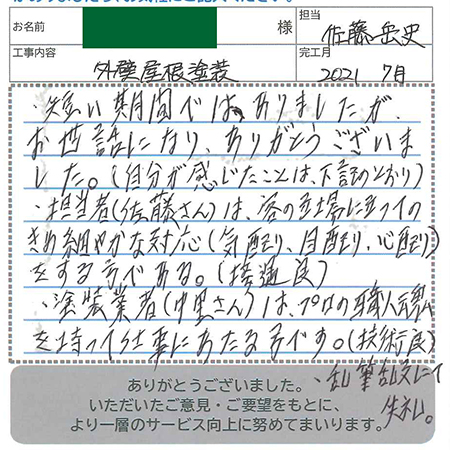 お名前
様
担当
佐藤岳史
工事内容
外壁屋根塗装
完工月
2021 7月
・短い期間ではありましたが、
お世話になり、ありがとうございま
した。(自分が感じたことは、下記のとおり)
・担当者(佐藤さん)は、客の立場に立っての
きめ細やかな対応(気配り、目配り、心配り)
をする方である。(接遇良)
・塗装業者(中里さん)は、プロの職人魂
を持って仕事にあたる方です。(技術良)
・乱筆乱文にて
失礼。
ありがとうございました。
いただいたご意見・ご要望をもとに、
より一層のサービス向上に努めてまいります。